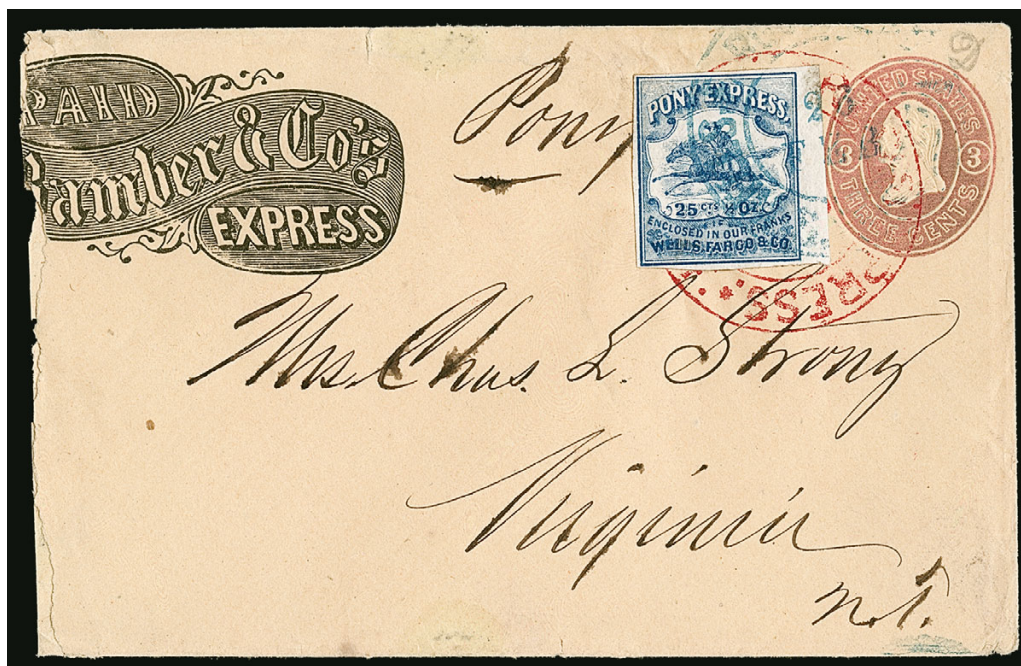 PAID
Bamber & Co's
EXPRESS
Pony
PONY EXPRESS
25 Cts ½ Oz.
ENCLOSED IN OUR FRANKS
WELLS, FARGO & CO.
UNITED STATES
3 3
THREE CENTS
PRESS
Mrs. Chas. L. Strong
Virginia
N.T.